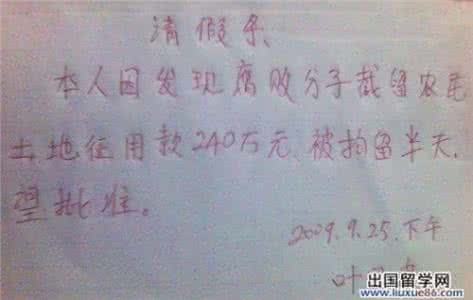 请假条
本人因发现腐败分子截留农民
土地征用款240万元,被拘留半天,
望批准。
2009.9.25.下午
叶
出国留学网
www.liuxue86.com